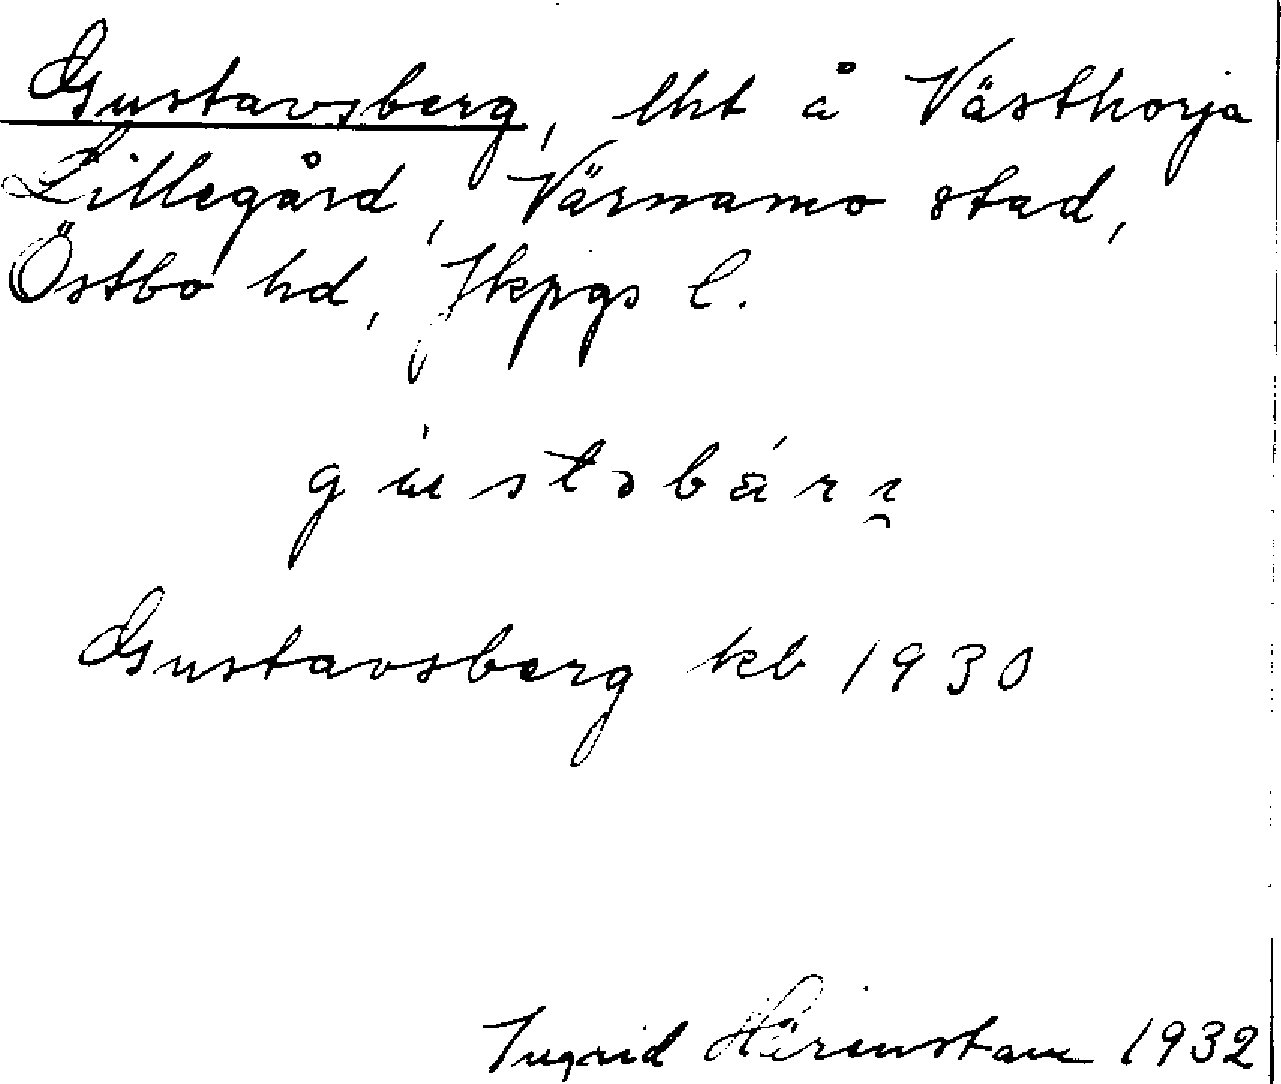 Gustavsberg, lht å Västhorja
Lillegård, Värnamo stad,
Östbo hd, Jkpgs l.
Gustavsberg kb 1930
Ingrid Härenstam 1932